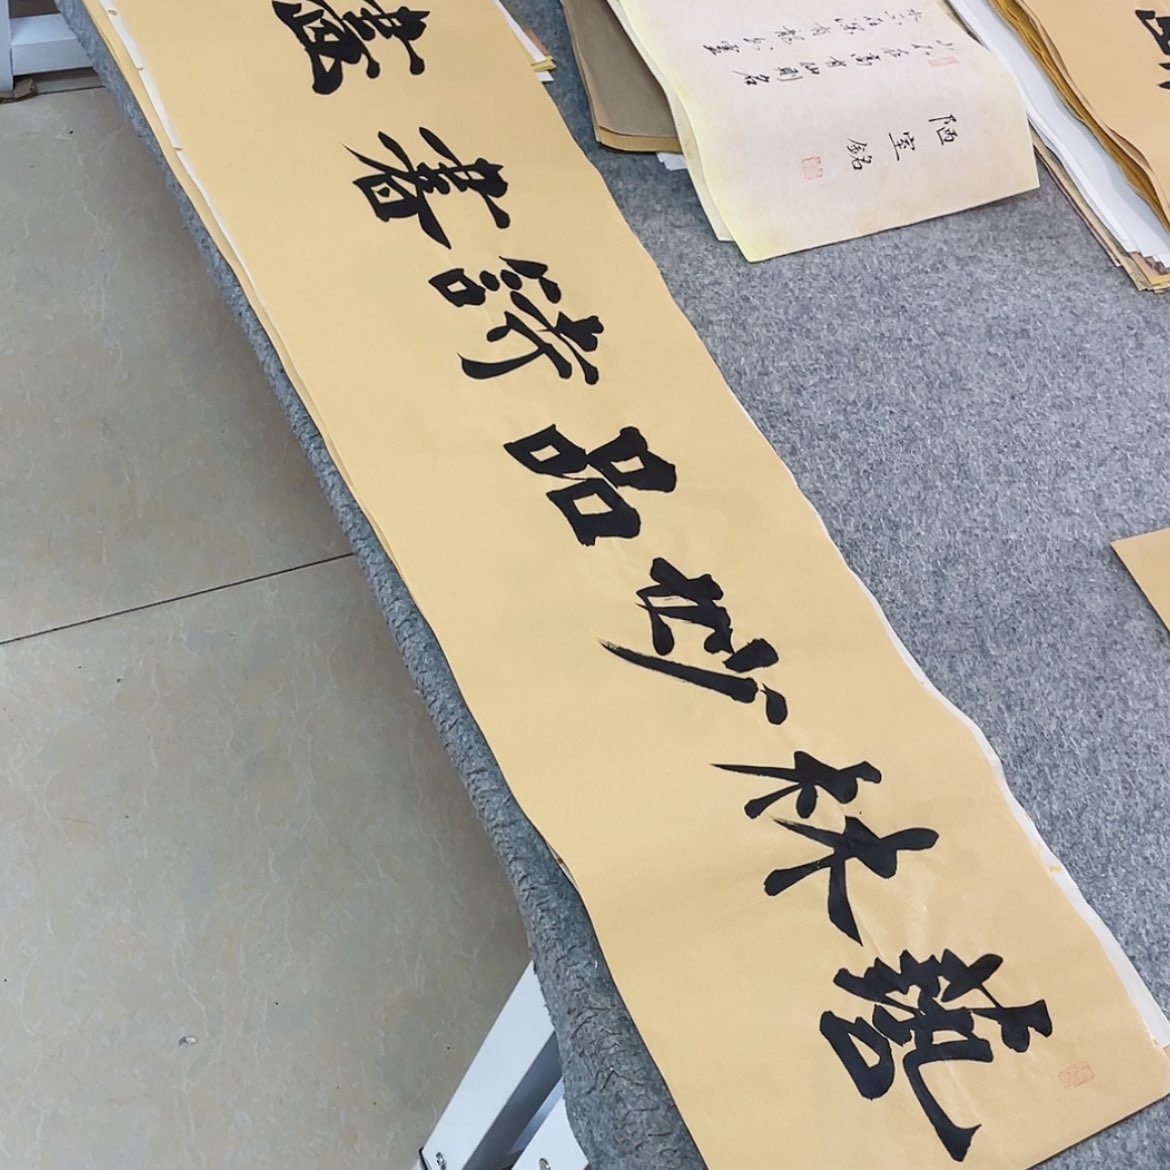 藝林妙品詩書畫
陋室銘
山不在高有仙則名
水不在深有龍則靈